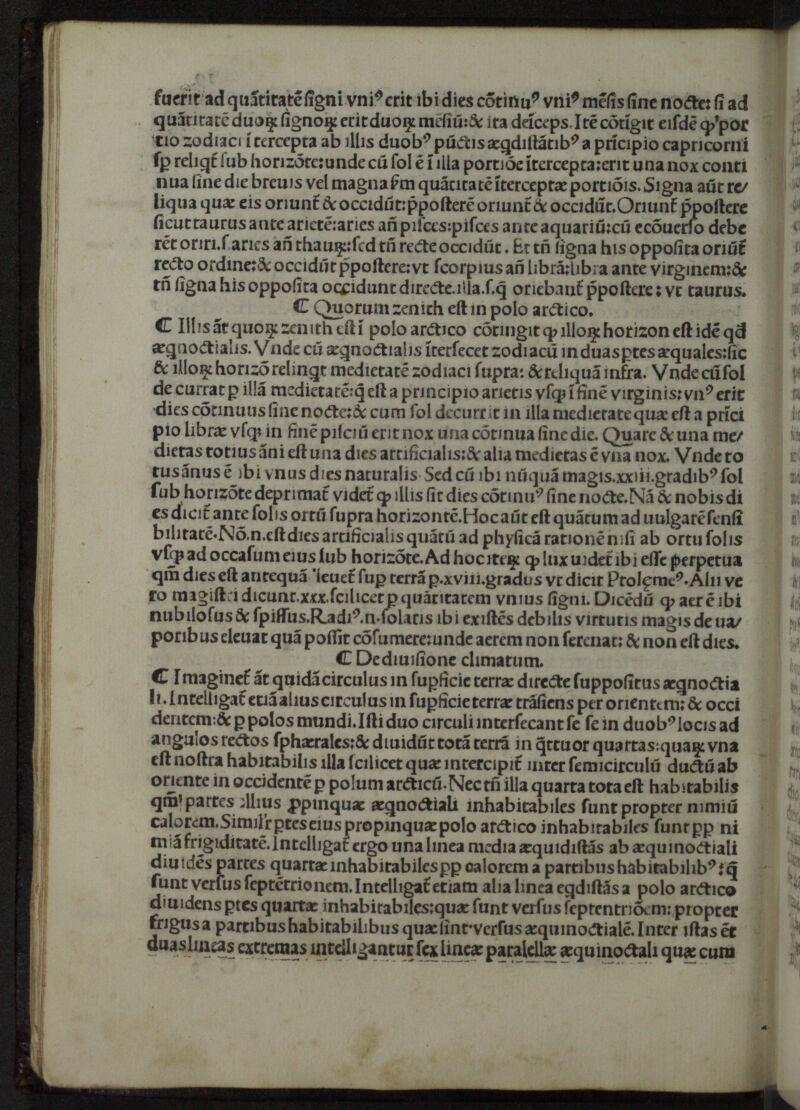 fuerit ad quãtitatẽ ſigni vniꝰ erit ibi dies cõtinuꝰ vniꝰ mẽſis ſine nocte: ſi ad
quãtitatẽ duoꝝ ſignoꝝ erit duoꝝ mẽſiũ: & ita deĩceps. Itẽ cõtĩgit eiſdẽ ꝙ por
tio zodiaci ĩtercepta ab illis duobꝰ pũctis æqdiſtãtibꝰ a pricipio capricorni
ſp relĩqt̃ ſub horizõte: unde cũ ſol ẽ ĩ illa portiõe ĩtercepta: erit una nox conti
nua ſine die breuis vel magna ẜm quãtitatẽ ĩterceptæ portiõis. Signa aũt re/
liqua quæ eis oriunt̃ & occidũt: p̃poſterẽ oriunt̃ & occidũt. Oriunt̃ p̃poſtere
ſicut taurus ante arietẽ: aries añ piſces: piſces ante aquariũ: cũ ecõuerſo debe
rẽt oriri. ſ. aries añ thauꝝ: ſed tñ recte occidũt. Et tñ ſigna his oppoſita oriũt̃
recto ordine: & occidũt p̃poſtere: vt ſcorpius añ librã: libra ante virginem: &
tñ ſigna his oppoſita occidunt directe. illa. ſ. q̃ oriebant̃ p̃poſtere: vt taurus.
⁋ Quorum zenith eſt in polo arctico.
⁋ Illis ãt quoꝝ zenith eſt ĩ polo arctico cõtingit ꝙ illoꝝ horizon eſt idẽ qd̃
æqnoctialis. Vnde cũ æqnoctialis ĩterſecet zodiacũ in duas ptes æquales: ſic
& illoꝝ horizõ relinqt medietatẽ zodiaci ſupra: & reliquã infra. Vnde cũ ſol
decurrat p illã medietatẽ: q̃ eſt a principio arietis vſqꝫ ĩ finẽ virginis: vnꝰ erit
dies cõtinuus ſine nocte: & cum ſol decurrit in illa medietate quæ eſt a pricĩ
pio libræ vſqꝫ in finẽ piſciũ erit nox una cõtinua ſine die. Quare & una me/
dietas totius ãni eſt una dies artificialis: & alia medietas ẽ vna nox. Vnde to
tus ãnus ẽ ibi vnus dies naturalis. Sed cũ ibi nũquã magis. xxiii. gradibꝰ ſol
ſub horizõte deprimat̃ videt̃ ꝙ illis ſit dies cõtinuꝰ ſine nocte. Nã & nobis di
es dicit̃ ante ſolis ortũ ſupra horizontẽ. Hoc aũt eſt quãtum ad uulgarẽ ſenſi
bilitatẽ. Nõ. n. eſt dies artificialis quãtũ ad phyſicã rationẽ niſi ab ortu ſolis
vſqꝫ ad occaſum eius ſub horizõte. Ad hoc iteꝝ ꝙ lux uidet̃ ibi eſſe perpetua
qm̃ dies eſt antequã leuet̃ ſup terrã p. xviii. gradus vt dicit Ptolęmeꝰ. Alii ve
ro magiſtri dicunt. xxx. ſcilicet p quãtitatem vnius ſigni. Dicẽdũ ꝙ aer ẽ ibi
nubiloſus & ſpiſſus. Radiꝰ. n. ſolaris ibi exiſtẽs debilis virtutis magis de ua/
poribus eleuat quã poſſit cõſumere: unde aerem non ſerenat: & non eſt dies.
⁋ De diuiſione climatum.
⁋ Imaginet̃ ãt quidã circulus in ſupficie terræ directe ſuppoſitus æqnoctia
li. Intelligat̃ etiã alius circulus in ſupficie terræ trãſiens per orientem: & occi
dentem: & p polos mundi. Iſti duo circuli interſecant ſe ſe in duobꝰ locis ad
angulos rectos ſphærales: & diuidũt totã terrã in q̃ttuor quartas: quaꝝ vna
eſt noſtra habitabilis illa ſcilicet quæ intercipit̃ inter ſemicirculũ ductũ ab
oriente in occidentẽ p polum arcticũ. Nec tñ illa quarta tota eſt habitabilis
qm̃ partes illius ꝓpinquæ æqnoctiali inhabitabiles ſunt propter nimiũ
calorem. Simil'r ptes eius propinquæ polo arctico inhabitabiles ſunt pp ni
miã frigiditatẽ. Intelligat̃ ergo una linea media æquidiſtãs ab æquinoctiali
diuidẽs partes quartæ inhabitabiles pp calorem a partibus habitabilibꝰ: q̃
ſunt verſus ſeptẽtrionem. Intelligat̃ etiam alia linea eqdiſtãs a polo arctico
diuidens ptes quartæ inhabitabiles: quæ ſunt verſus ſeptentriõem: propter
frigus a partibus habitabilibus quæ ſint verſus æquinoctialẽ. Inter iſtas ẽt
duas lineas extremas intelligantur ſex lineæ paralellæ æquinoctali quæ cum